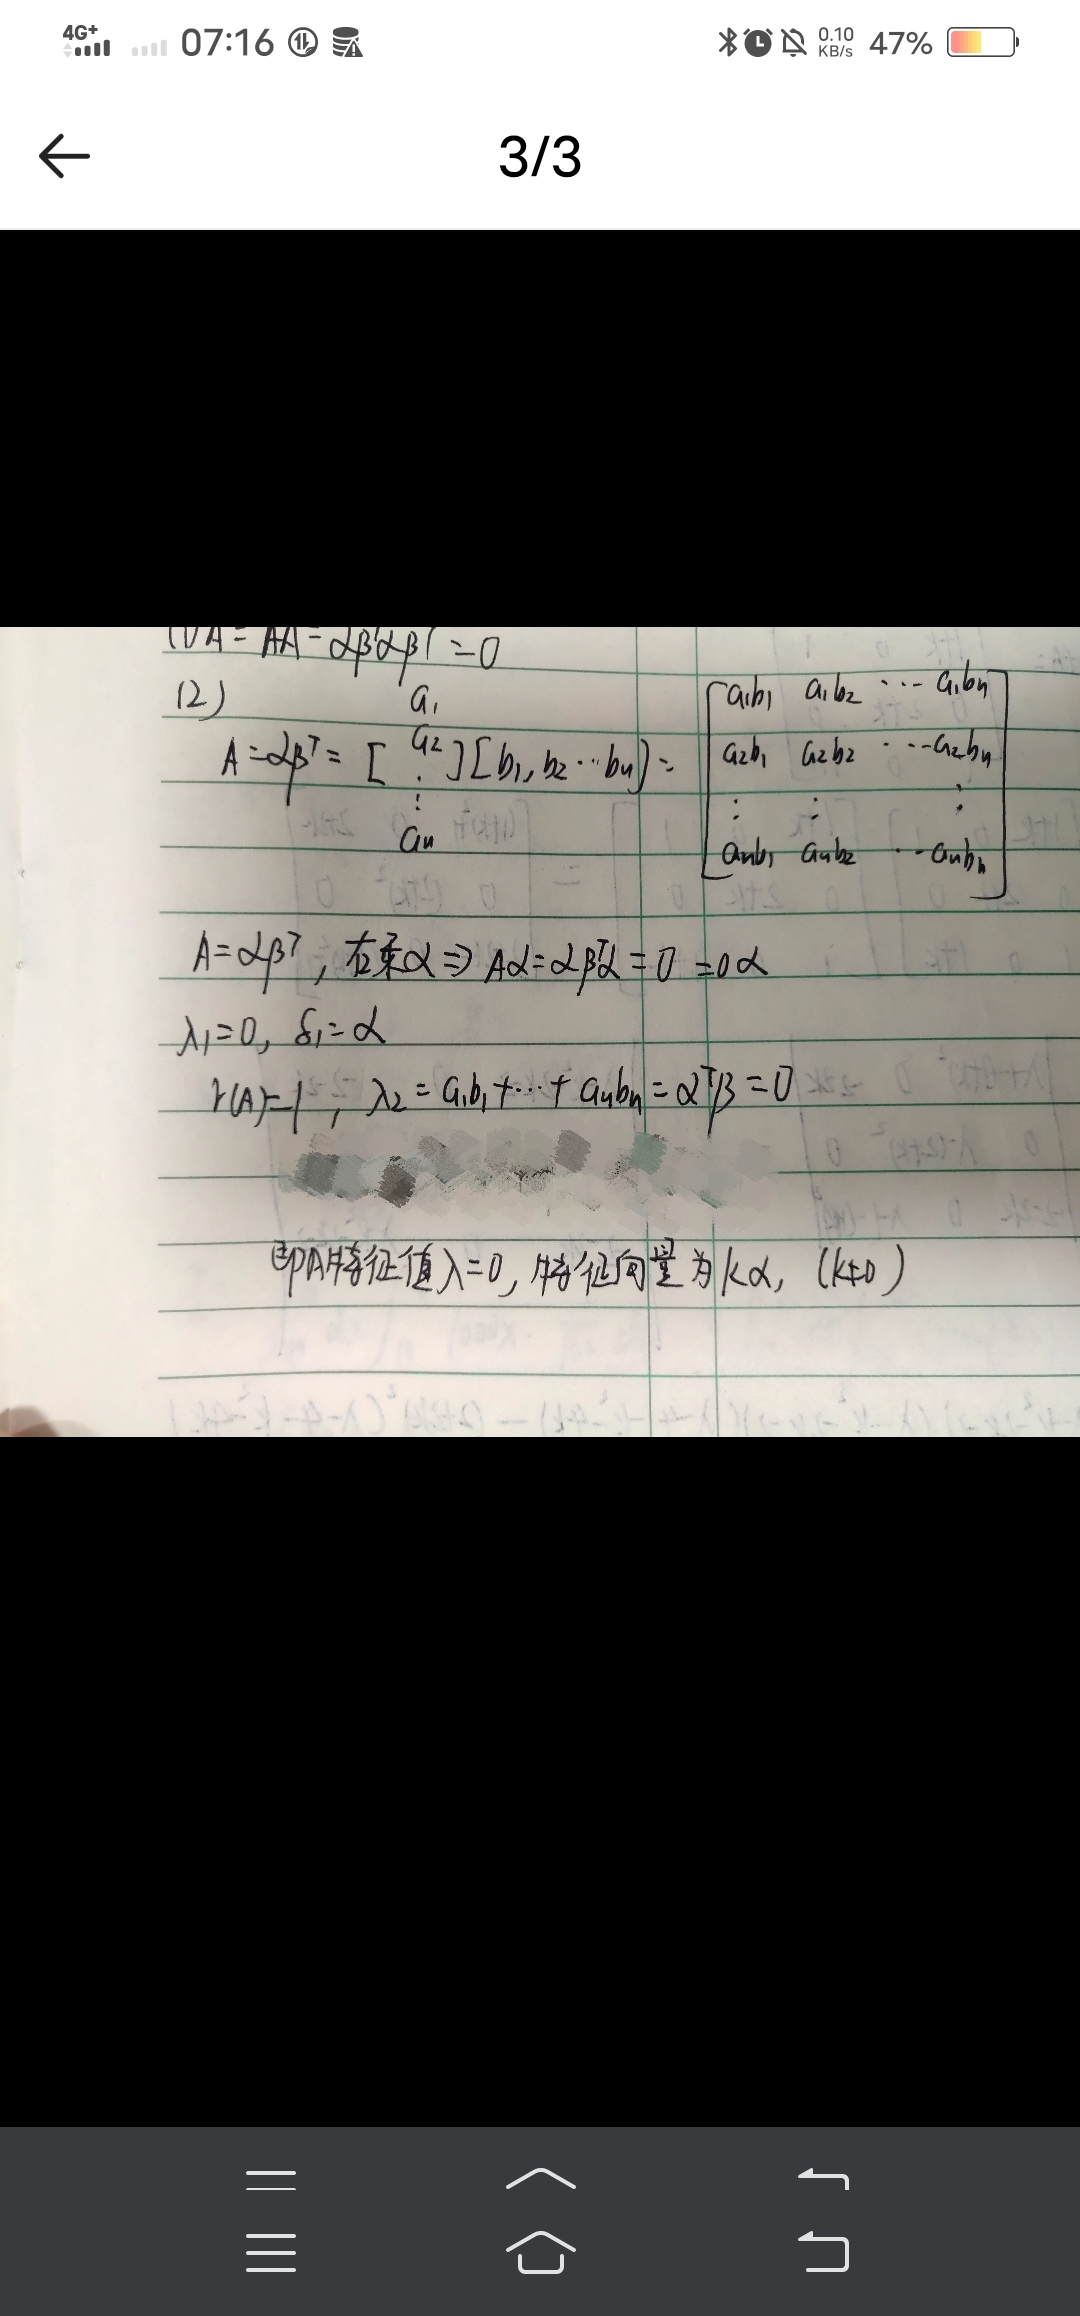 4G+ 07:16 0.10 KB/s 47%
3/3
= AA = αβᵀαβᵀ = 0
(2)
A = αβᵀ = [a₁ a₂ ⋮ aₙ][b₁, b₂ ⋯ bₙ] = [a₁b₁ a₁b₂ ⋯ a₁bₙ
a₂b₁ a₂b₂ ⋯ a₂bₙ
⋮ ⋮ ⋮
aₙb₁ aₙb₂ ⋯ aₙbₙ]
A = αβᵀ, 右乘α ⇒ Aα = αβᵀα = 0 = 0α
λ₁ = 0, δ₁ = α
r(A) = 1, λ₂ = a₁b₁ + ⋯ + aₙbₙ = αᵀβ = 0
即A特征值λ = 0, 特征向量为kα, (k≠0)